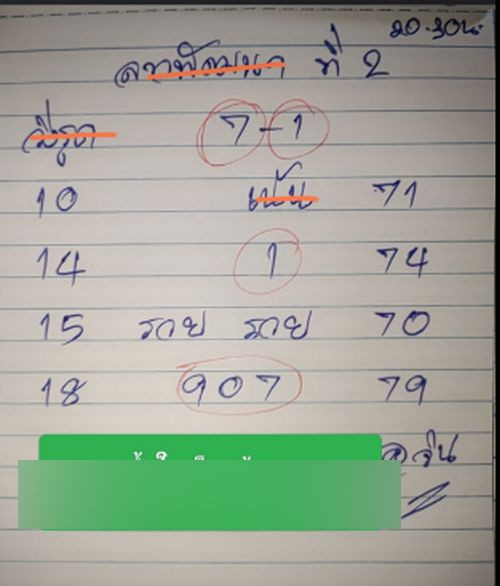 20.30น.
ลาวพัฒนา ที่ 2
มีรูด 7-1
10 เน้น 71
14 1 74
15 รวย รวย 70
18 907 79